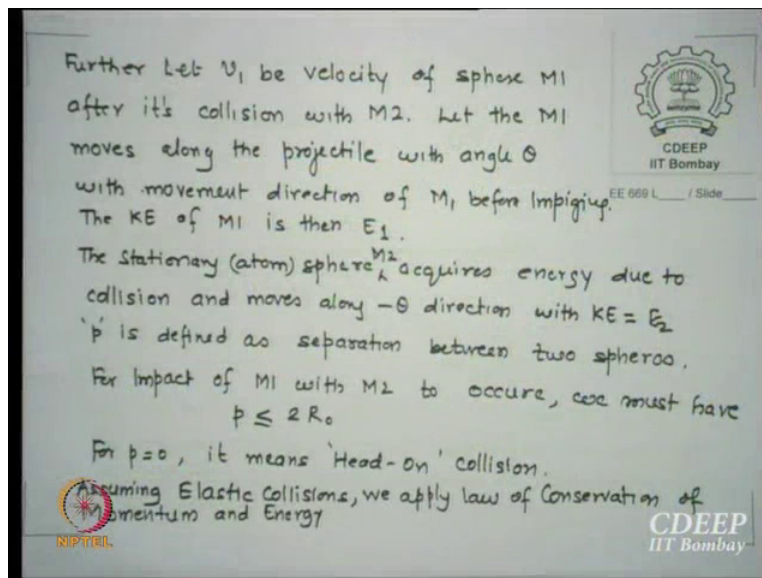 Further Let v₁ be velocity of sphere M1
after it's collision with M2. Let the M1
moves along the projectile with angle θ
with movement direction of M₁ before Impigiup.
The KE of M1 is then E₁.
The Stationary (atom) sphere M2 acquires energy due to
collision and moves along -θ direction with KE = E₂
'p' is defined as separation between two spheres.
For Impact of M1 with M2 to occure, we must have
p ≤ 2 R₀
For p=0, it means 'Head-On' collision.
Assuming Elastic Collisions, we apply law of Conservation of
Momentum and Energy
CDEEP
IIT Bombay
EE 669 L____ / Slide____
NPTEL
CDEEP
IIT Bombay